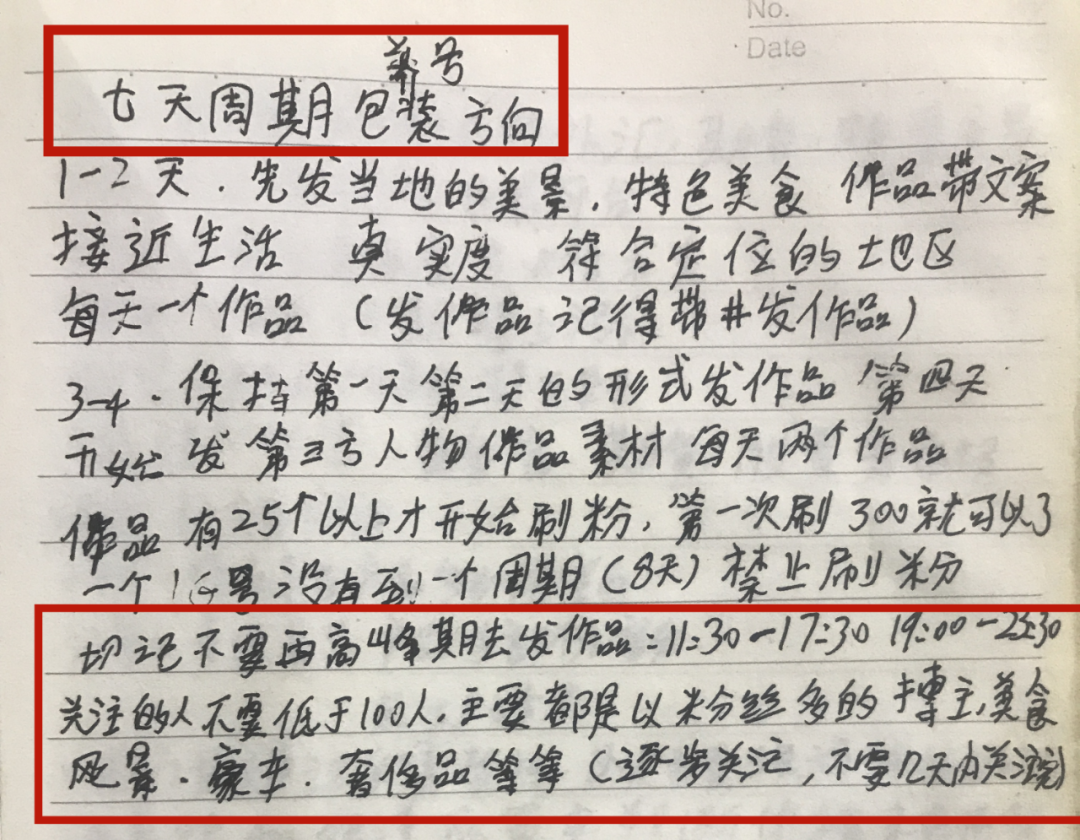 No.
Date
养号
七天周期包装方向
1-2天.先发当地的美景.特色美食 作品带文案
接近生活 真实度 符合定位的地区
每天一个作品(发作品记得带井发作品)
3-4.保持第一天第二天的形式发作品 第四天
开始发第三方人物作品素材 每天两个作品
作品有25个以上才开始刷粉,第一次刷300就可以了
一个 号没有到一个周期(8天)禁止刷粉
切记不要再高峰期去发作品:11:30-17:30 19:00-23:30
关注的人不要低于100人.主要都是以粉丝多的博主,美食
风景.豪车.奢侈品等等(逐步关注,不要几天内关注完)